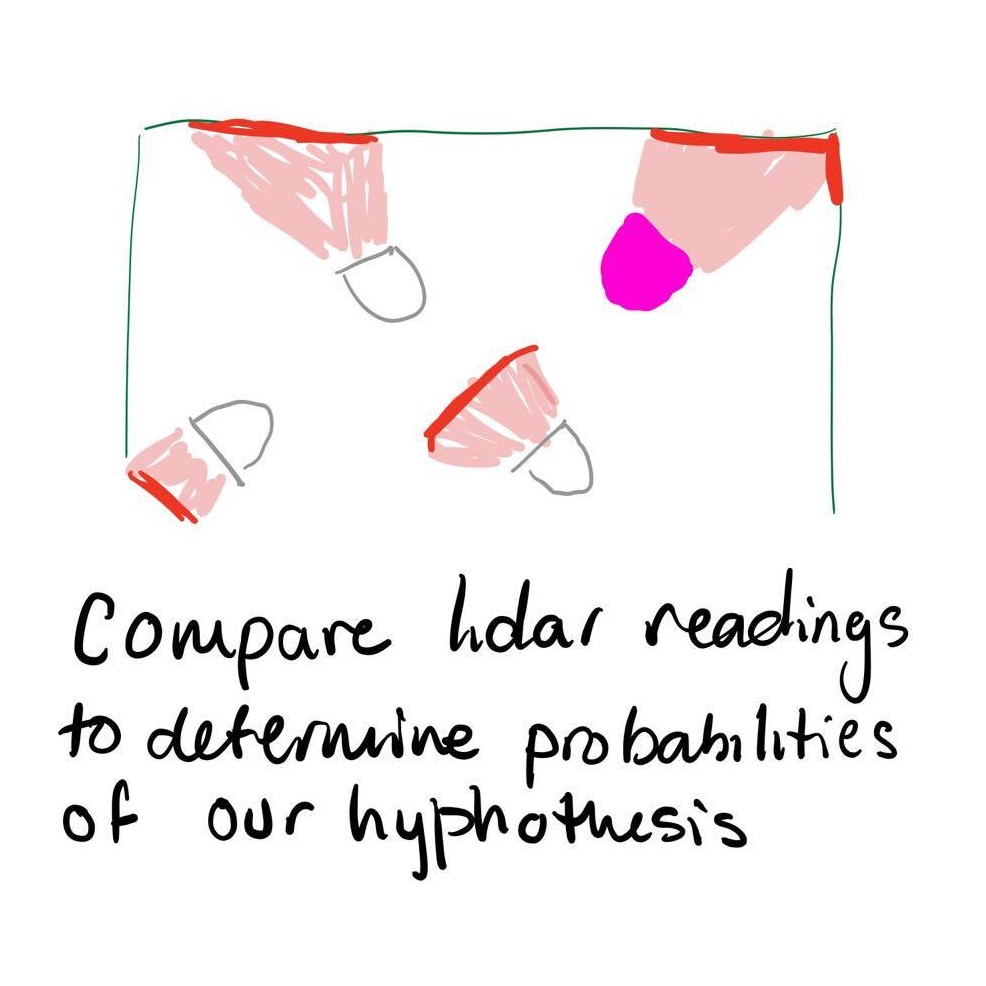 Compare lidar readings
to determine probabilities
of our hyphothesis